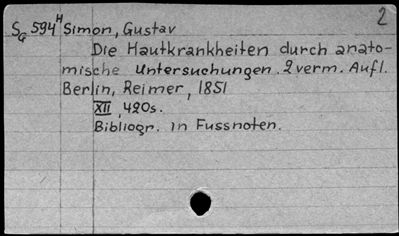 2
SG 594H Simon, Gustav
Die Hautkrankheiten durch anato-
mische Untersuchungen. 2 verm. Aufl.
Berlin, Reimer, 1851
XII, 420s.
Bibliogr. in Fussnoten.